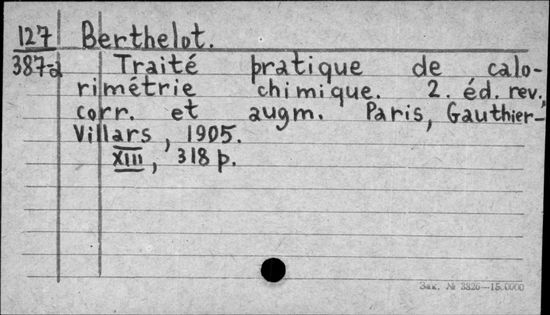 127 Berthelot.
387-2 Traité pratique de calo-
rimétrie chimique. 2. éd. rev.,
corr. et augm. Paris, Gauthier-
Villars, 1905.
XIII, 318 p.
Зак. № 3826—15.0000